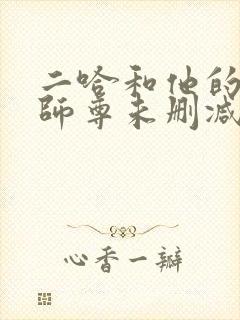 二哈和他的
师尊未删减
心香一瓣